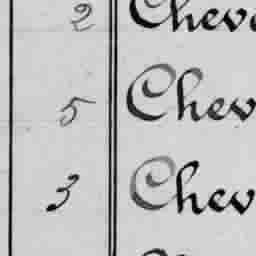 2 Cheve
5 Chev
3 Chev